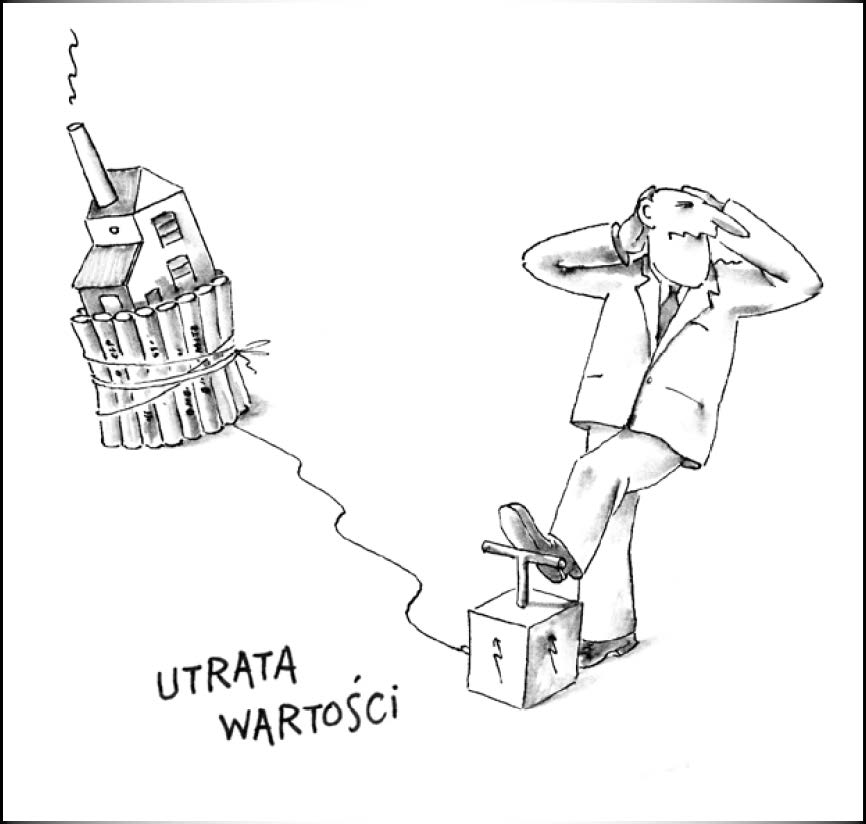 UTRATA
WARTOŚCI